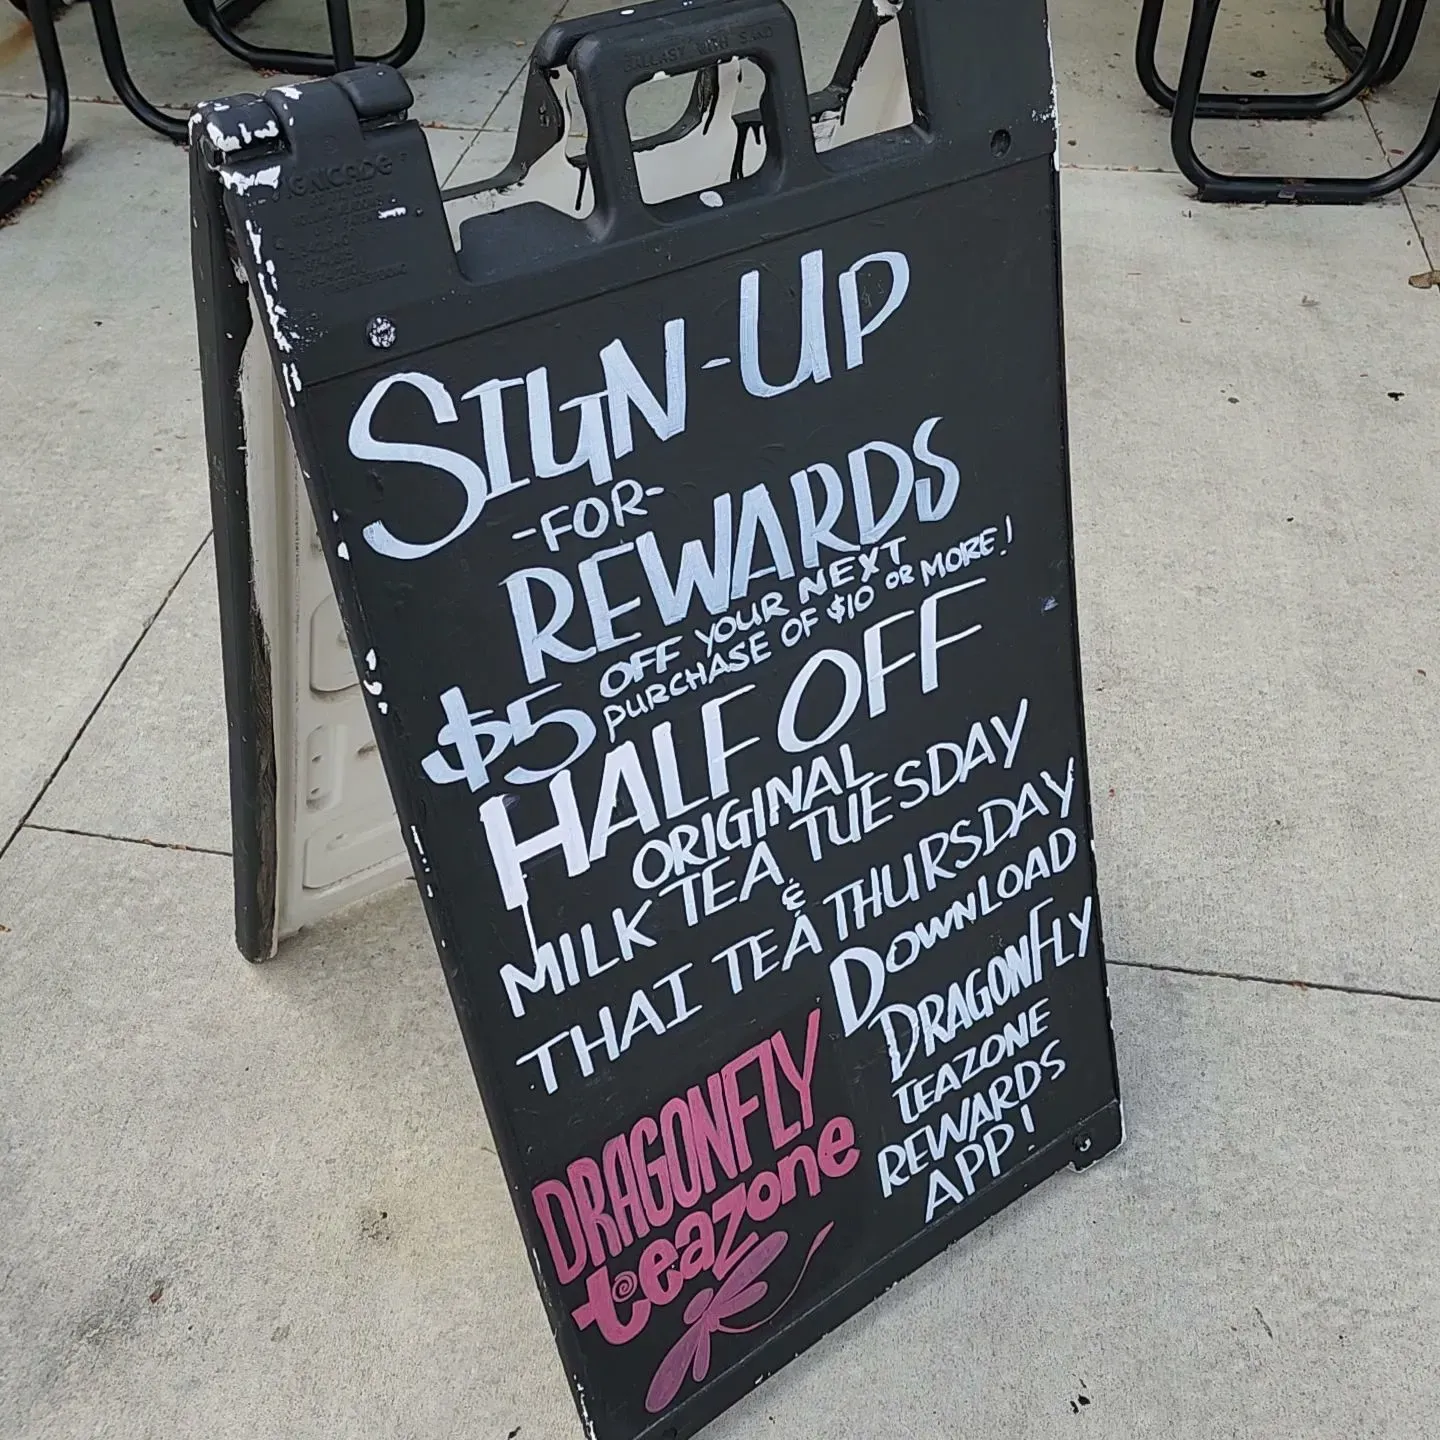 BALLAST WITH SAND
SIGNICADE
SIGN-UP
-FOR-
REWARDS
$5 OFF YOUR NEXT
PURCHASE OF $10 OR MORE!
HALF OFF
ORIGINAL
MILK TEA TUESDAY
&
THAI TEA THURSDAY
DOWNLOAD
DRAGONFLY
TEAZONE
REWARDS
APP!
DRAGONFLY
teazone